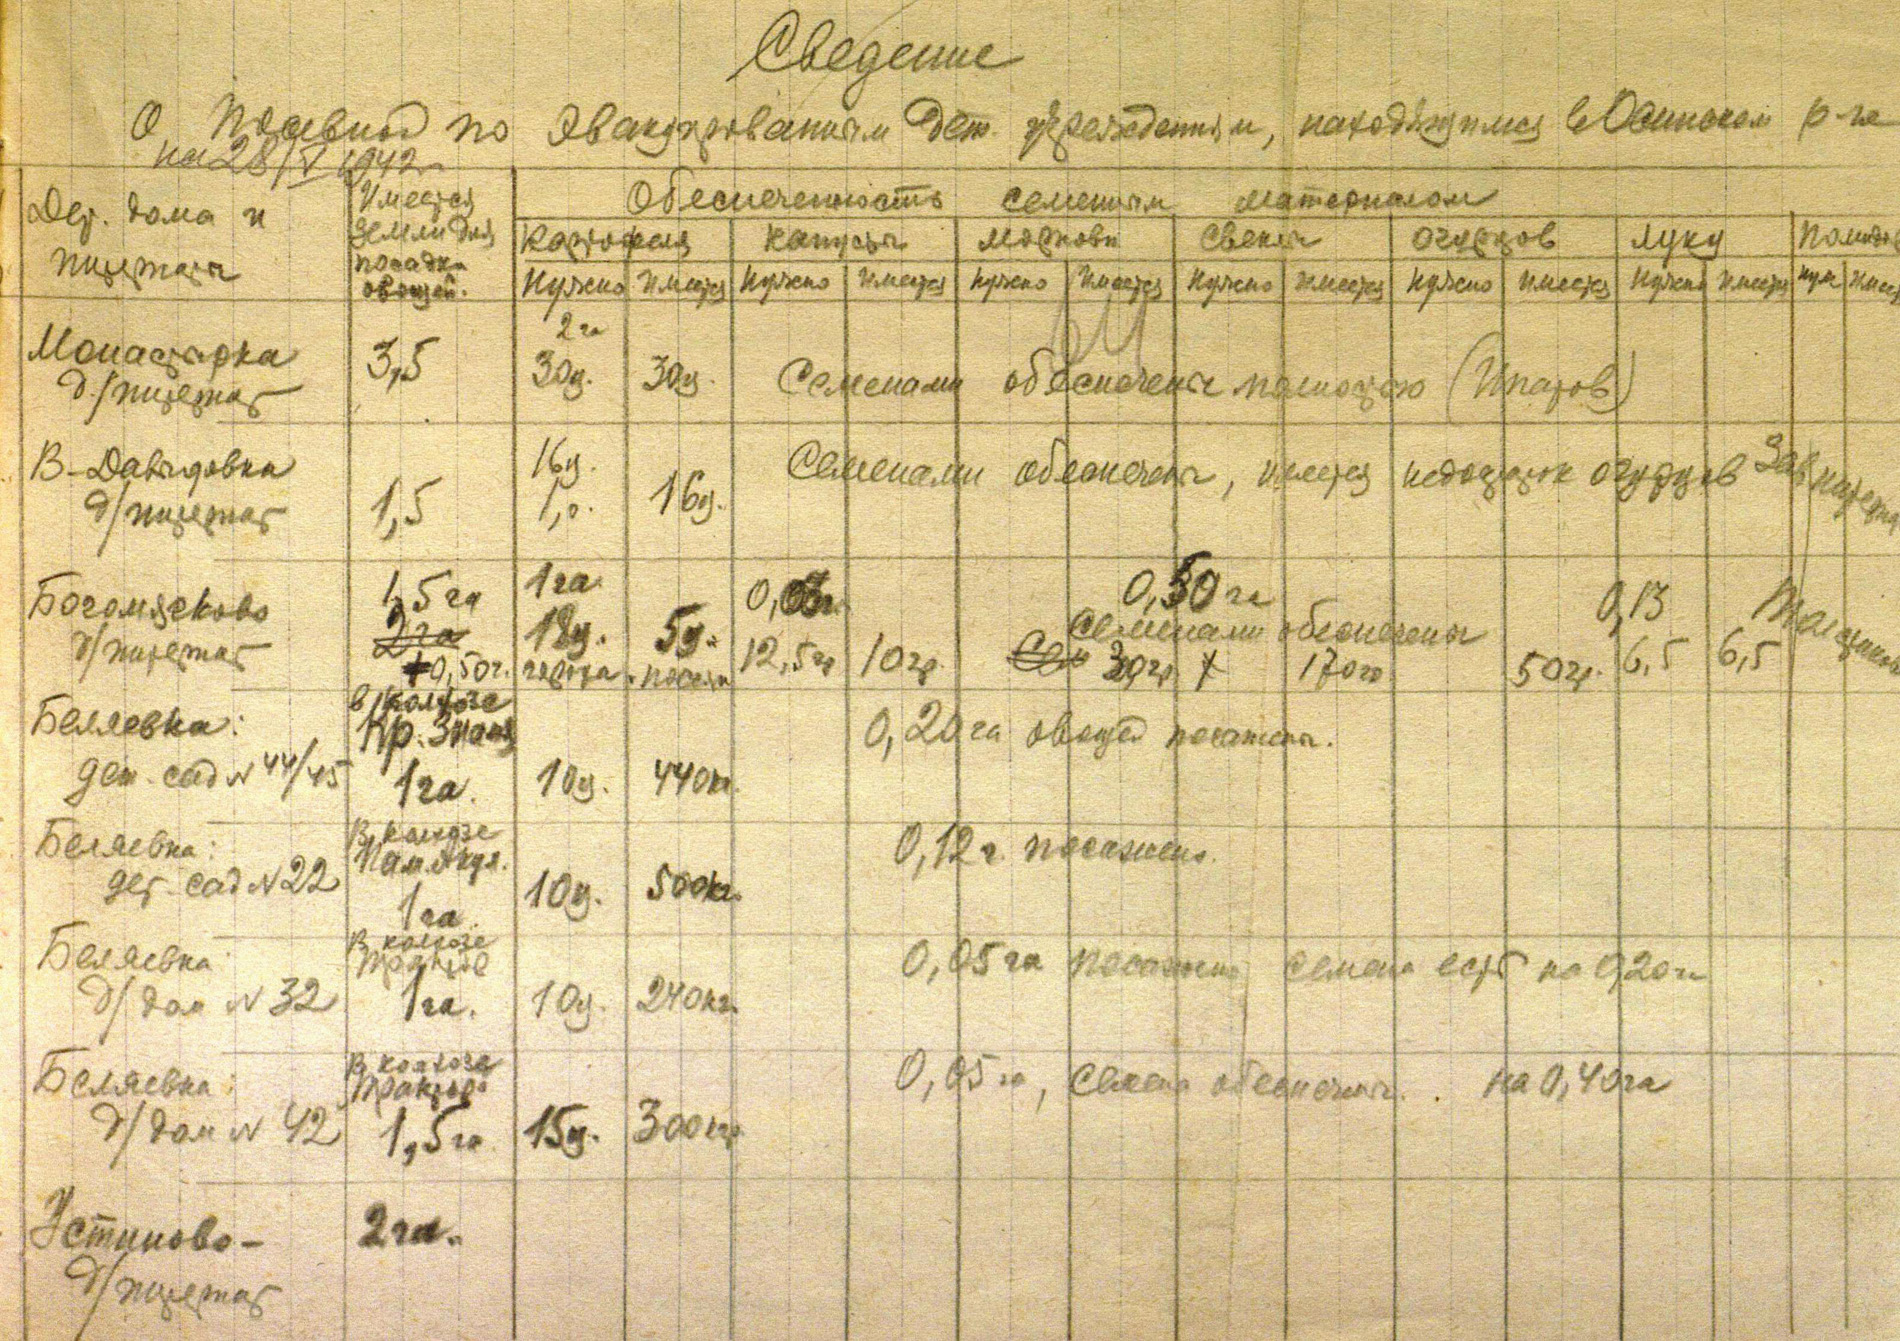 Сведение
о посевной по эвакуированным дет. учреждениям, находящимся в Осинском р-не
на 28/V 1942 г.
Дет. дома и интернаты
Имеется земли для посадки овощей.
Обеспеченность семенным материалом
Картофеля капусты моркови свеклы огурцов луку помидо
Нужно имеется нужно имеется нужно имеется нужно имеется нужно имеется нужно имеется нуж имеет
2 га
Монастырка 3,5 30ц. 30ц. Семенами обеспечены полностью (Ипатов)
д/интернат
В-Давыдовка 16ц. Семенами обеспечены, имеется недостаток огурцов Зав интерна
д/интернат 1,5 1, г. 16ц.
Богомягково 1,5 га 1 га 0,03г. 0,50 га 0,13
2 га 18ц. 5ц. Семенами обеспечены
д/интернат +0,50г. гороха. посеян 12,5гр 10гр. Сем 30гр + 170гр 50гр. 6,5 6,5
Беляевка: в колхозе Кр. Знамя 0,20 га овощей посажены.
дет. сад N 44/45 1 га. 10ц. 440кг.
Беляевка: В колхозе 0,12 г. посажено.
дет. сад N 22 1 га 10ц. 500кг.
Беляевка В колхозе 0,05 га посажено семена есть на 0,20 га
д/дом N 32 1 га. 10ц. 240кг.
Беляевка: В колхозе 0,05 га, семена обеспечены. на 0,40 га
д/дом N 42 1,5 га 15ц. 300кгр
Устиново- 2 га.
д/интернат